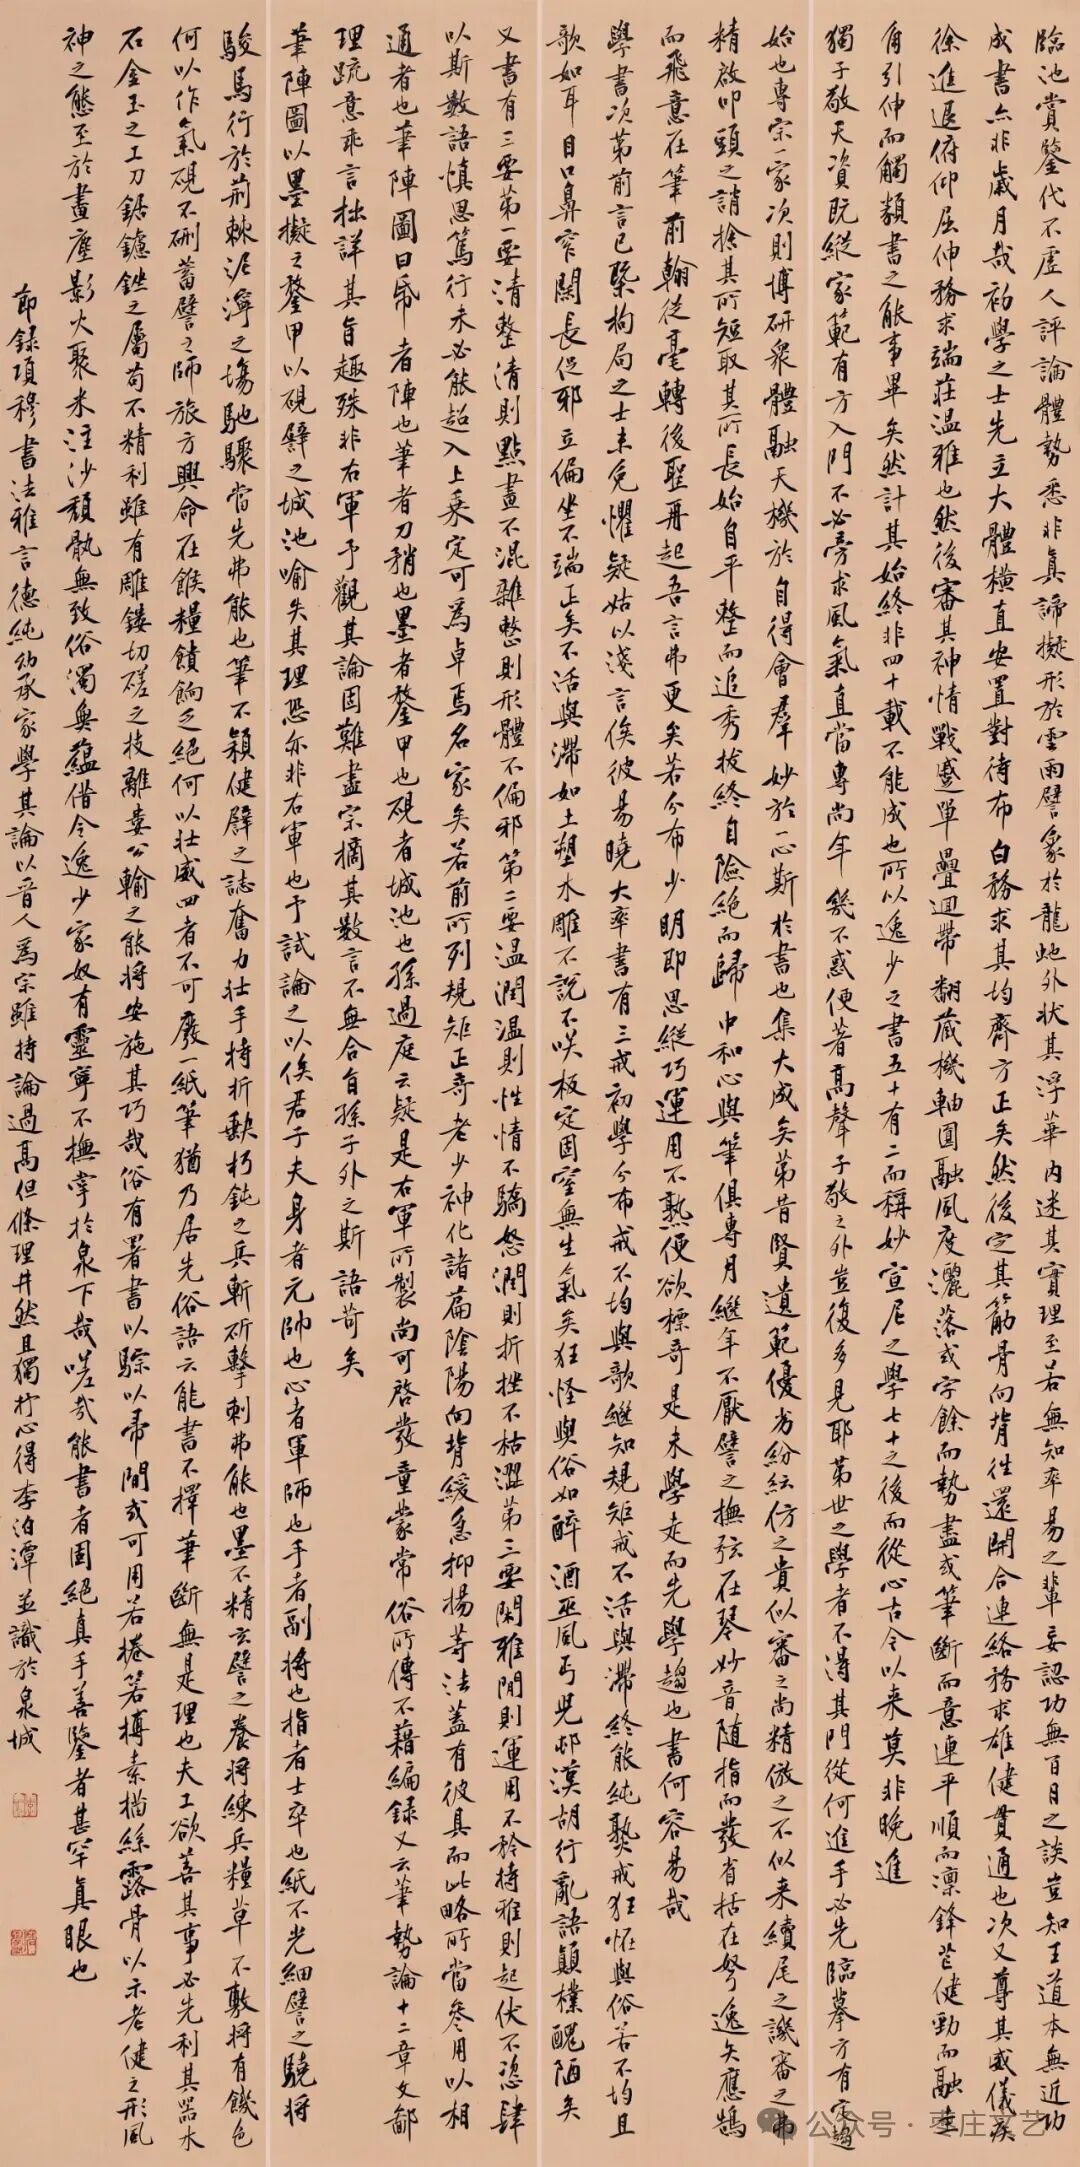 臨池賞鑒代不虛人評論體勢悉非真諦擬形於雲雨譬象於龍虵外狀其浮華內迷其實理至若無知率易之輩妄認功無百日之談豈知王道本無近功
成書亦非歲月哉初學之士先立大體橫直安置對待布白務求其均齊方正矣然後定其筋骨向背往還開合連絡務求雄健貫通也次又尊其威儀疾
徐進退俯仰屈伸務求端莊溫雅也然後審其神情戰蹙單疊迴帶翻藏機軸圓融風度灑落或字餘而勢盡或筆斷而意連平順而凜鋒芒健勁而融圭
角引伸而觸類書之能事畢矣然計其始終非四十載不能成也所以逸少之書五十有二而稱妙宣尼之學七十之後而從心古今以來莫非晚進
獨子敬天資既縱家範有方入門不必旁求風氣直當專尚年幾不惑便著高聲子敬之外豈復多見耶第世之學者不得其門從何進手必先臨摹方有定趨
始也專宗一家次則博研眾體融天機於自得會羣妙於一心斯於書也集大成矣第昔賢遺範優劣紛紜仿之貴似審之尚精倣之不似来續尾之譏審之弗
精啟叩頭之誚捨其所短取其所長始自平整而追秀拔終自險絕而歸中和心與筆俱專月繼年不厭譬之撫弦在琴妙音随指而發省括在弩逸矢應鵠
而飛意在筆前翰從毫轉後聖再起吾言弗更矣若分布少明即思縱巧運用不熟便欲標奇是未學走而先學趨也書何容易哉
學書次第前言已槩拘局之士未免懼疑姑以淺言俟彼易曉大率書有三戒初學分布戒不均與欹繼知規矩戒不活與滯終能純熟戒狂怪與俗若不均且
欹如耳目口鼻窄闊長促邪立偏坐不端正矣不活與滯如土塑木雕不說不笑板定固窒無生氣矣狂怪與俗如醉酒巫風丐兒村漢胡行亂語顛樸醜陋矣
又書有三要第一要清整清則點畫不混雜整則形體不偏邪第二要溫潤溫則性情不驕怒潤則折挫不枯澀第三要閑雅閒則運用不矜持雅則起伏不恣肆
以斯數語慎思篤行未必能超入上乘定可為卓焉名家矣若前所列規矩正奇老少神化諸篇陰陽向背緩急抑揚等法蓋有彼具而此略所當參用以相
通者也筆陣圖曰紙者陣也筆者刀矟也墨者鍪甲也硯者城池也孫過庭云疑是右軍所製尚可啓發童蒙常俗所傳不藉編錄又云筆勢論十二章文鄙
理疏意乖言拙詳其旨趣殊非右軍予觀其論固難盡宗摘其數言不無合旨孫子外之斯語苛矣
筆陣圖以墨擬之鍪甲以硯譬之城池喻失其理恐亦非右軍也予試論之以俟君子夫身者元帥也心者軍師也手者副將也指者士卒也紙不光細譬之驍將
駿馬行於荊棘泥濘之場馳驟當先弗能也筆不穎健譬之誌奮力壯手持折缺朽鈍之兵斬斫擊刺弗能也墨不精玄譬之養將練兵糧草不敷將有饑色
何以作氣硯不硎蓄譬之師旅方興命在餱糧饋餉乏絕何以壯威四者不可廢一紙筆猶乃居先俗語云能書不擇筆斷無是理也夫工欲善其事必先利其器木
石金玉之工刀鋸鑢銼之屬苟不精利雖有雕鏤切磋之技離婁公輸之能將安施其巧哉俗有署書以騌以帚間或可用若捲箬摶素描絲露骨以示老健之形風
神之態至於畫塵影火聚米注沙頹骩無致俗濁無蘊借令逸少家奴有靈寧不撫掌於泉下哉嗟哉能書者固絕真手善鑒者甚罕真眼也
節錄項穆書法雅言德純幼承家學其論以晉人為宗雖持論過高但條理井然且獨抒心得李泊潭並識於泉城
公众号·枣庄文艺